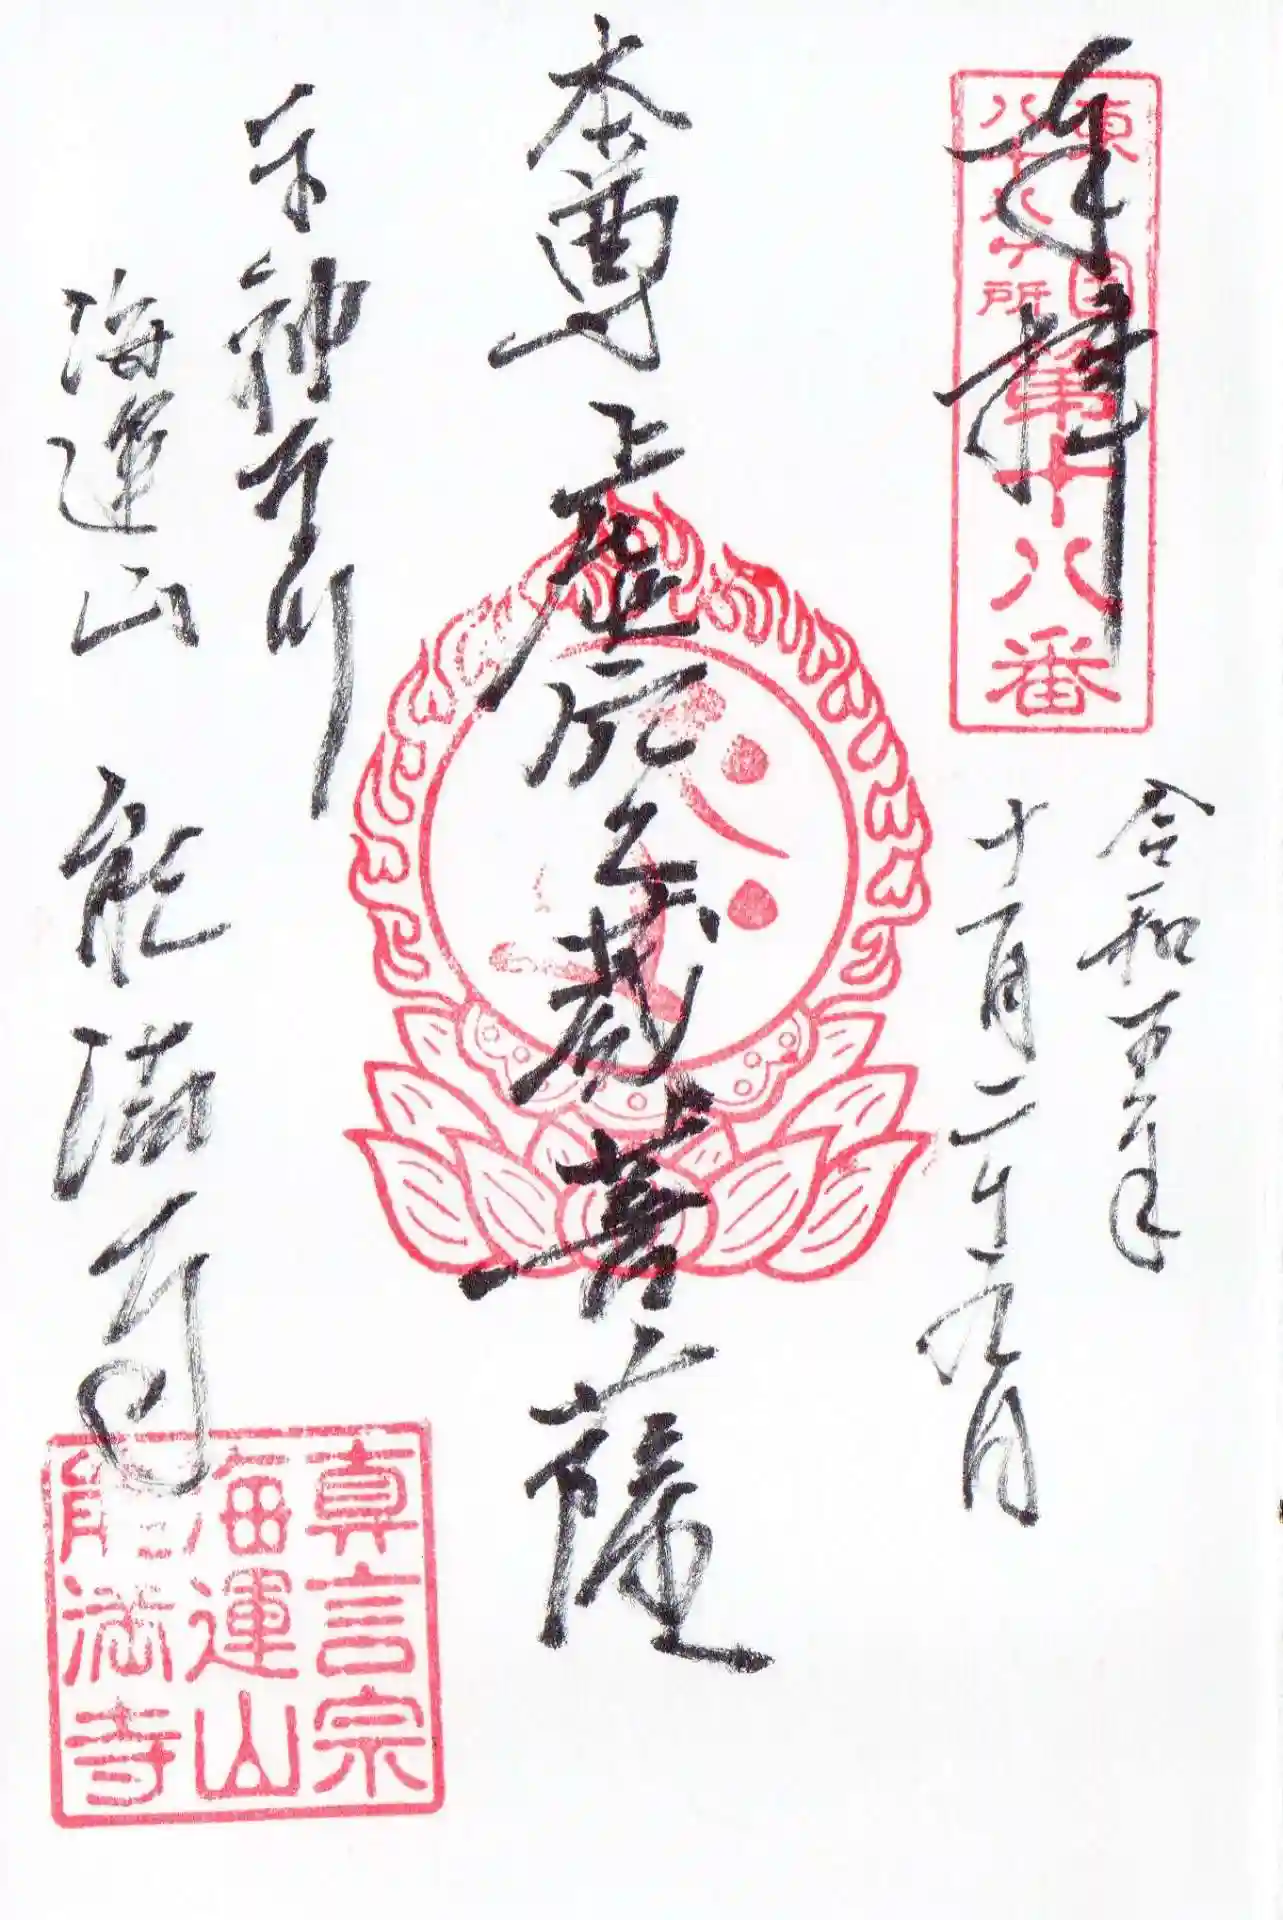 東国
八十八ヶ所
第十八番
奉拝
令和五年
十一月二十九日
本尊 虚空蔵菩薩
東神奈川
海運山 能満寺
真言宗
海運山
能満寺